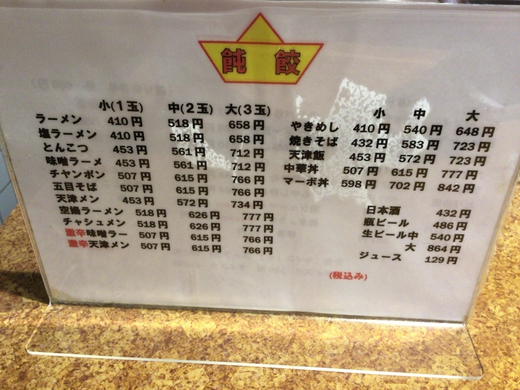 飩 餃
小(1玉) 中(2玉) 大(3玉)
ラーメン 410円 518円 658円
塩ラーメン 410円 518円 658円
とんこつ 453円 561円 712円
味噌ラーメ 453円 561円 712円
チャンポン 507円 615円 766円
五目そば 507円 615円 766円
天津メン 453円 572円 734円
空揚ラーメン 518円 626円 777円
チャシュメン 518円 626円 777円
激辛味噌ラー 507円 615円 766円
激辛天津メン 507円 615円 766円
小 中 大
やきめし 410円 540円 648円
焼きそば 432円 583円 723円
天津飯 453円 572円 723円
中華丼 507円 615円 777円
マーボ丼 598円 702円 842円
日本酒 432円
瓶ビール 486円
生ビール中 540円
大 864円
ジュース 129円
(税込み)